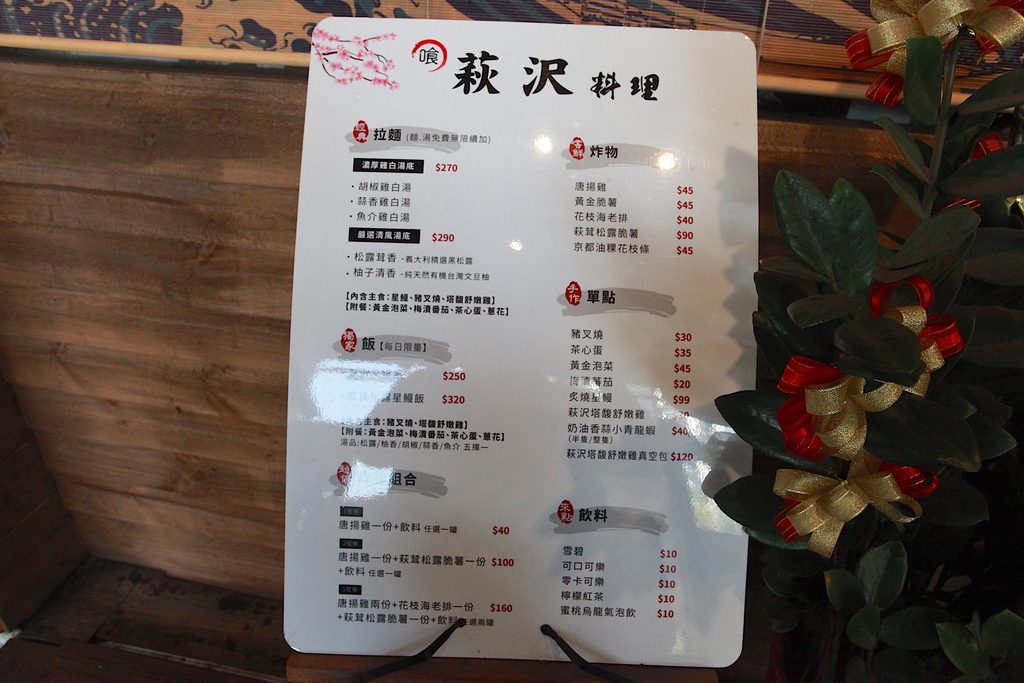 喰
萩沢料理
經典 拉麵 (麵,湯免費無限續加)
濃厚雞白湯底 $270
・胡椒雞白湯
・蒜香雞白湯
・魚介雞白湯
嚴選清風湯底 $290
・松露茸香 -義大利精選黑松露
・柚子清香 -純天然有機台灣文旦柚
【內含主食:星鰻、豬叉燒、塔馥舒嫩雞】
【附餐:黃金泡菜、梅漬番茄、茶心蛋、蔥花】
獨家 飯【每日限量】
$250
星鰻飯 $320
主食:豬叉燒、塔馥舒嫩雞】
【附餐:黃金泡菜、梅漬番茄、茶心蛋、蔥花】
湯品:松露/柚香/胡椒/蒜香/魚介 五擇一
組合
1號餐
唐揚雞一份+飲料 任選一罐 $40
2號餐
唐揚雞一份+萩茸松露脆薯一份 $100
+飲料 任選一罐
3號餐
唐揚雞兩份+花枝海老排一份 $160
+萩茸松露脆薯一份+飲料 任選兩罐
炸物
唐揚雞 $45
黃金脆薯 $45
花枝海老排 $40
萩茸松露脆薯 $90
京都油粿花枝條 $45
手作 單點
豬叉燒 $30
茶心蛋 $35
黃金泡菜 $45
梅漬蕃茄 $20
炙燒星鰻 $99
萩沢塔馥舒嫩雞
奶油香蒜小青龍蝦 $40
(半隻/整隻)
萩沢塔馥舒嫩雞真空包 $120
來點 飲料
雪碧 $10
可口可樂 $10
零卡可樂 $10
檸檬紅茶 $10
蜜桃烏龍氣泡飲 $10